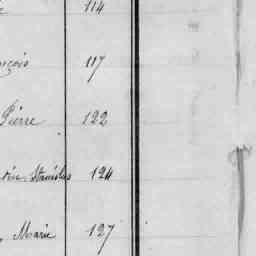 114
nçois 117
Pierre 122
Stanislas 124
Marie 127